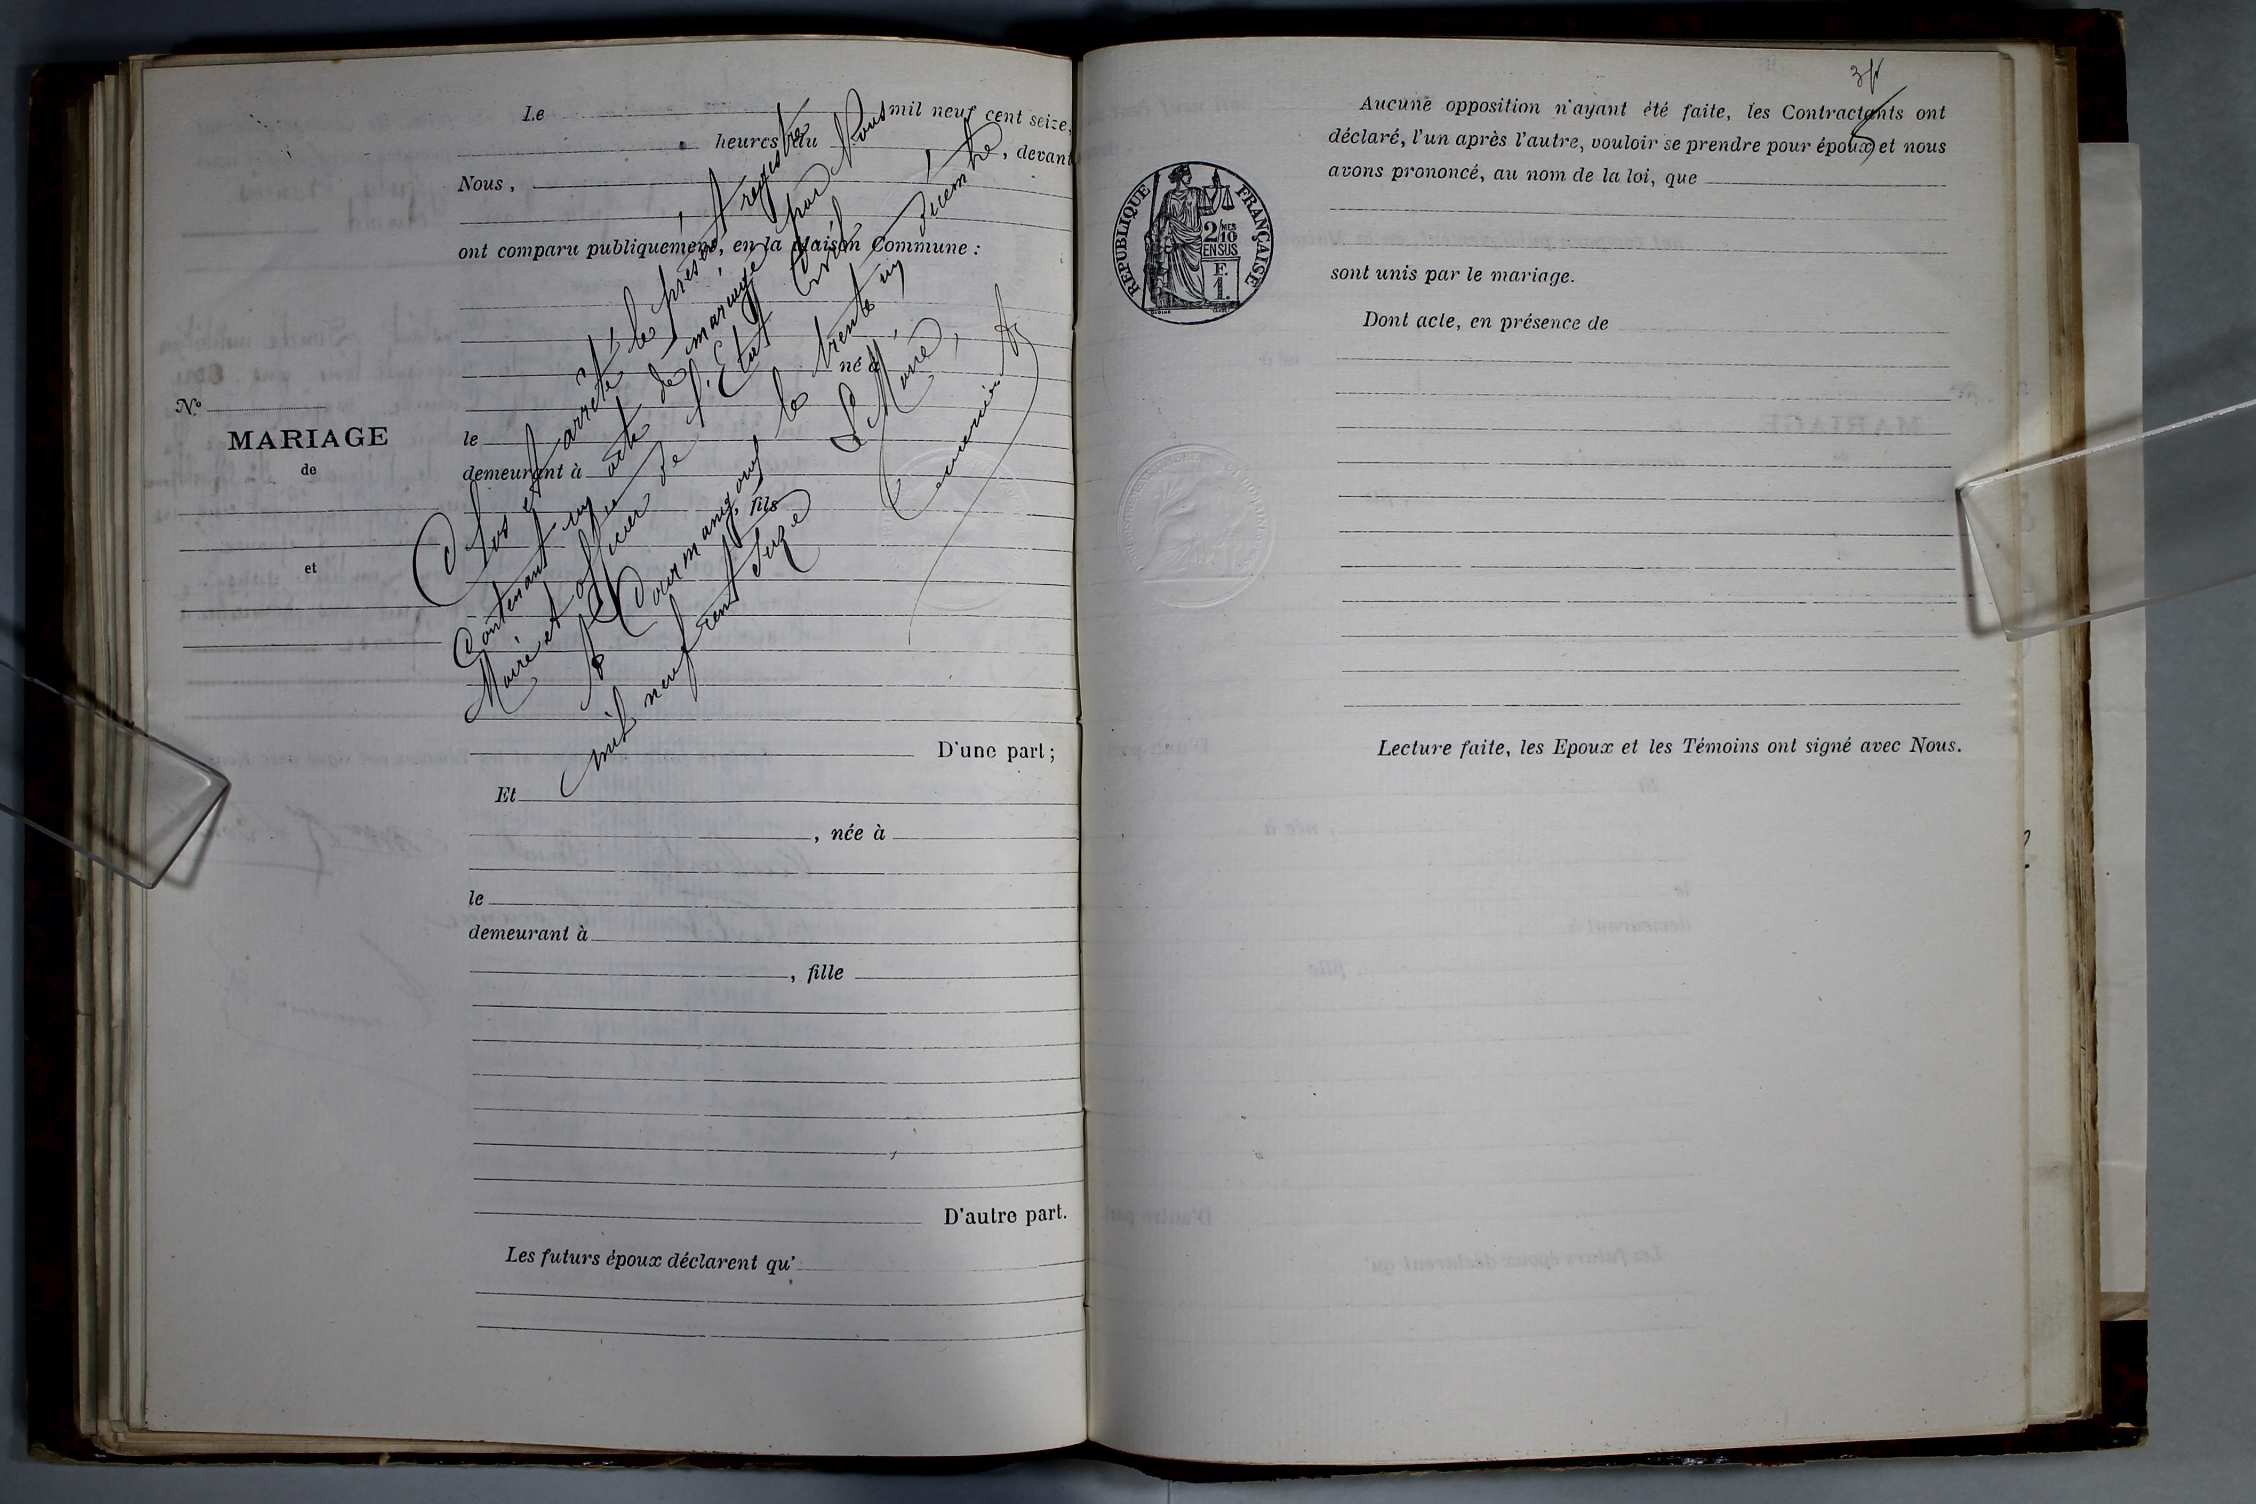 Le mil neuf cent seize,
heures du , devant
Nous ,
ont comparu publiquement, en la Maison Commune :
né à
le
demeurant à
, fils
D'une part ;
Et
, née à
le
demeurant à
, fille
,
D'autre part.
Les futurs époux déclarent qu'
No
MARIAGE
de
et
Clos et arrêté le présent registre
Contenant un acte de mariage par Nous
Maire et officier de l'Etat Civil
A Courmangoux, le trente un Décembre
mil neuf cent seize
Le Maire,
3
Aucune opposition n'ayant été faite, les Contractants ont
déclaré, l'un après l'autre, vouloir se prendre pour époux, et nous
avons prononcé, au nom de la loi, que
sont unis par le mariage.
Dont acte, en présence de
Lecture faite, les Epoux et les Témoins ont signé avec Nous.
RÉPUBLIQUE FRANÇAISE
2/10
MES
EN SUS
F.
1.